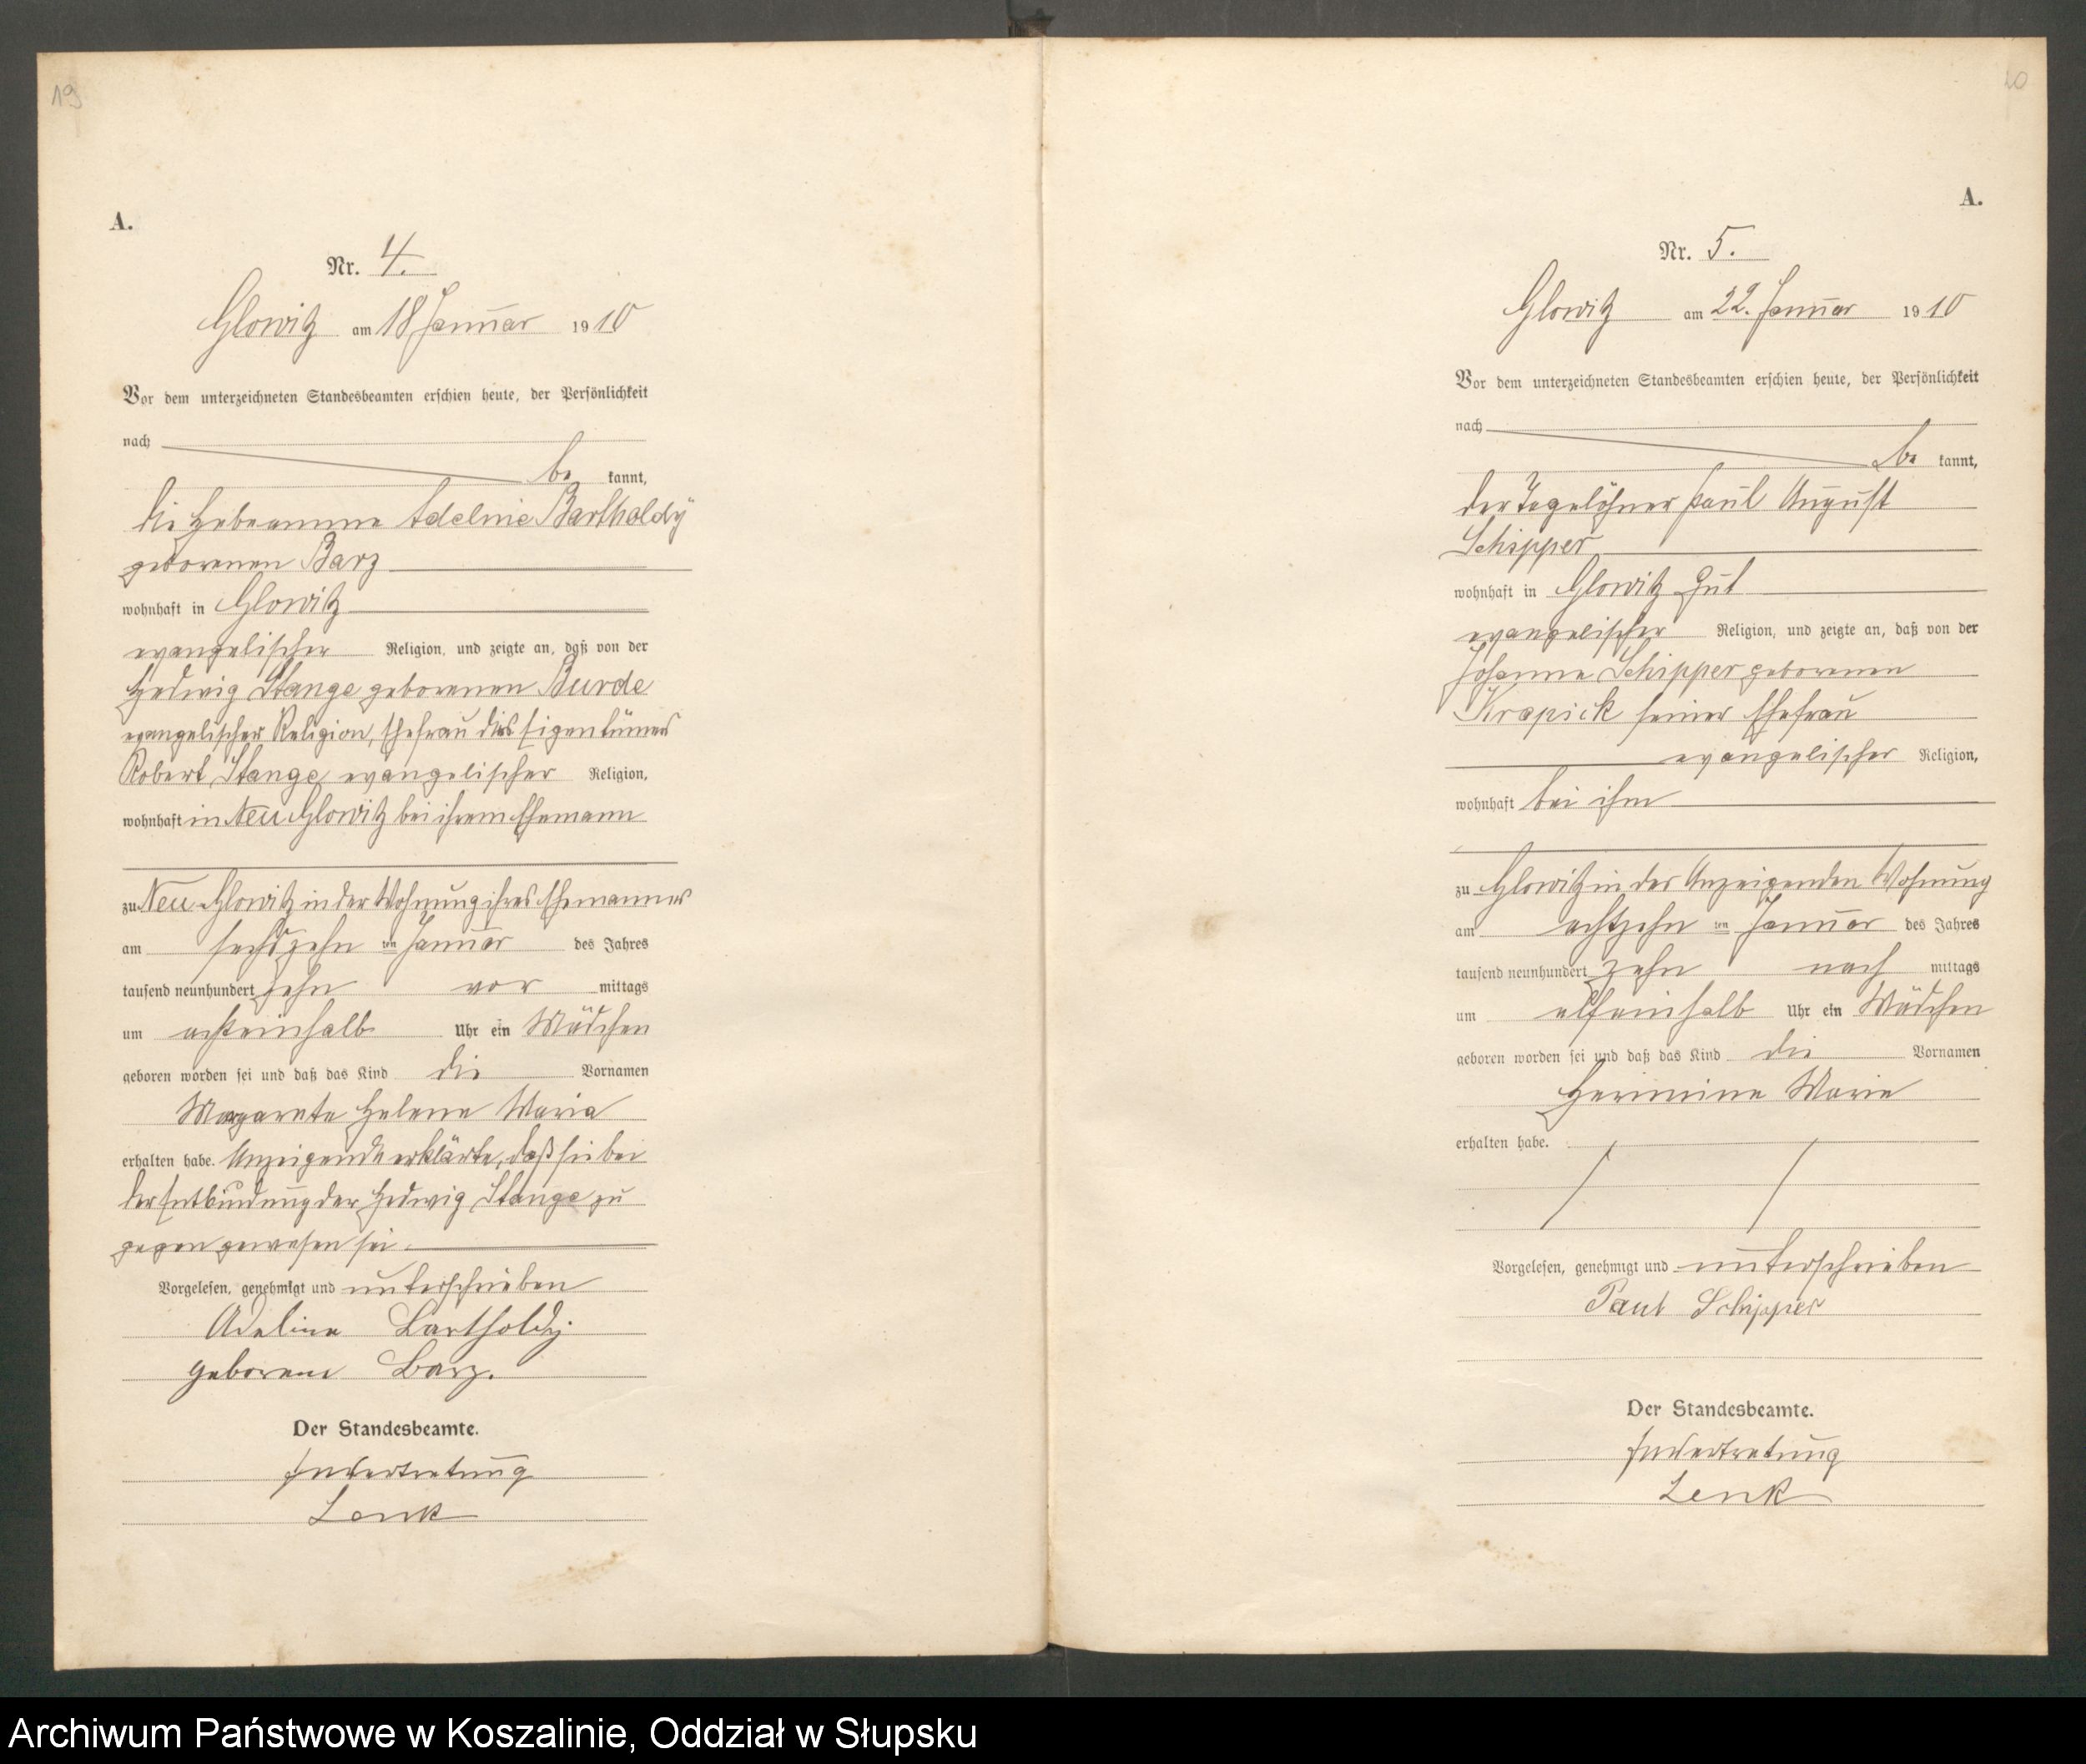 19
A.
Nr. 4.
Glowitz am 18 Januar 1910
Vor dem unterzeichneten Standesbeamten erschien heute, der Persönlichkeit
nach
be kannt,
die Hebeamme Adeline Bartholdÿ
geborenen Barz
wohnhaft in Glowitz
evangelischer Religion, und zeigte an, daß von der
Hedwig Stange geborenen Burde
evangelischer Religion, Ehefrau des Eigentümers
Robert Stange evangelischer Religion,
wohnhaft in Neu Glowitz bei ihrem Ehemann
zu Neu-Glowitz in der Wohnung ihres Ehemannes
am sechszehn ten Januar des Jahres
tausend neunhundert zehn vor mittags
um achteinhalb Uhr ein Mädchen
geboren worden sei und daß das Kind die Vornamen
Margarete Helene Maria
erhalten habe. Anzeigende erklärte, daß sie bei
der Entbindung der Hedwig Stange zu
gegen gewesen sei.
Vorgelesen, genehmigt und unterschrieben
Adeline Bartholdy
geborene Barz.
Der Standesbeamte.
In Vertretung
Lenk
20
A.
Nr. 5.
Glowitz am 22. Januar 1910
Vor dem unterzeichneten Standesbeamten erschien heute, der Persönlichkeit
nach
be kannt,
der Tagelöhner Paul August
Schipper
wohnhaft in Glowitz Gut
evangelischer Religion, und zeigte an, daß von der
Johanne Schipper geborenen
Krapick seiner Ehefrau
evangelischer Religion,
wohnhaft bei ihm
zu Glowitz in des Anzeigenden Wohnung
am achtzehn ten Januar des Jahres
tausend neunhundert zehn nach mittags
um elfeinhalb Uhr ein Mädchen
geboren worden sei und daß das Kind die Vornamen
Hermine Marie
erhalten habe.
Vorgelesen, genehmigt und unterschrieben
Paul Schipper
Der Standesbeamte.
In Vertretung
Lenk
Archiwum Państwowe w Koszalinie, Oddział w Słupsku